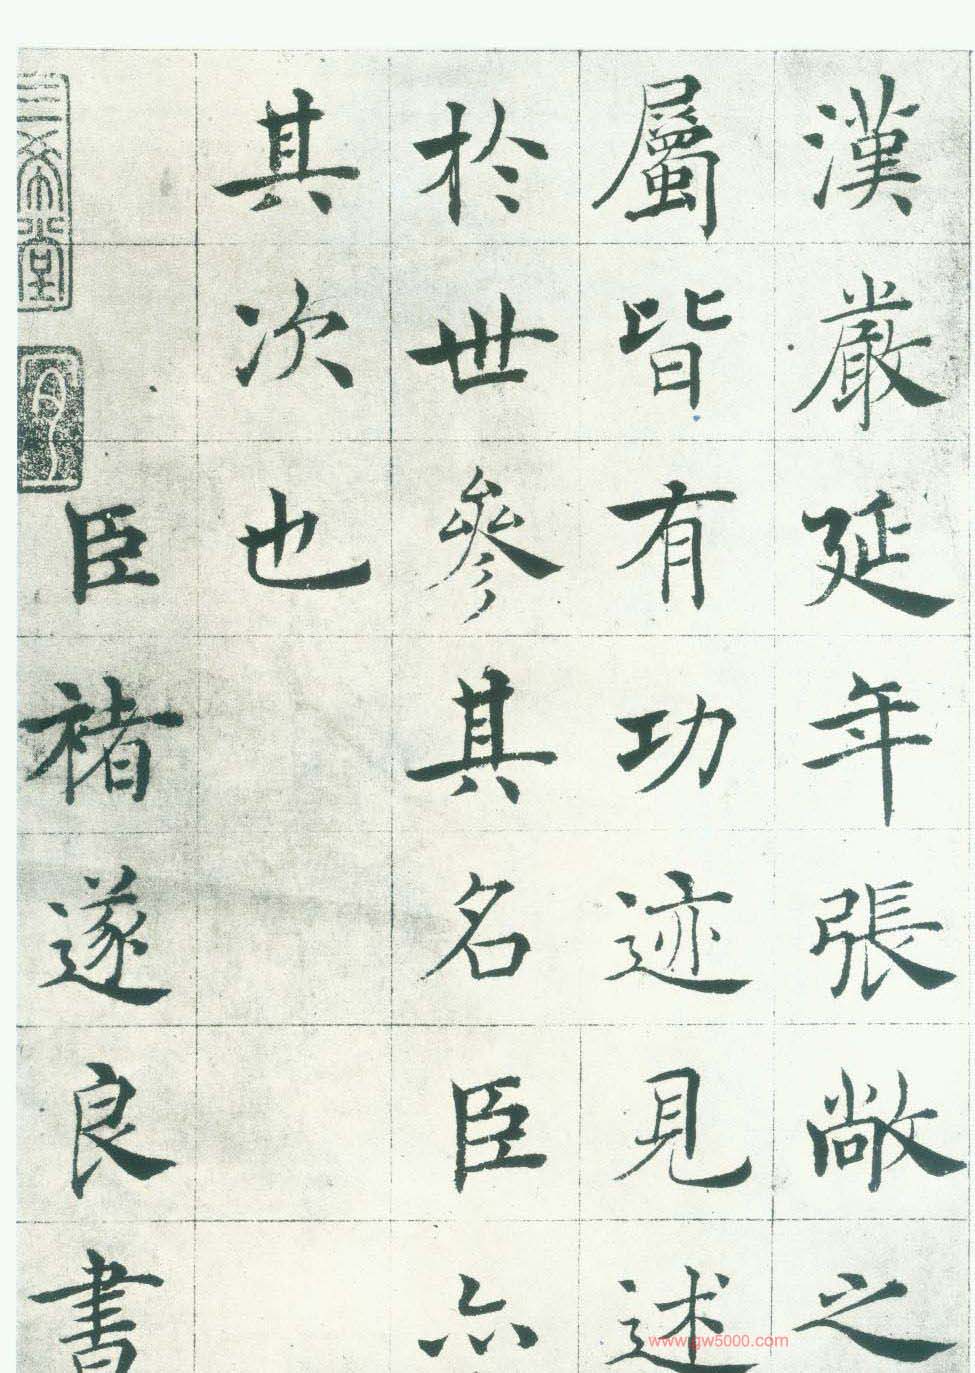 漢嚴延年張敞之
屬皆有功迹見述
於世參其名臣亦
其次也
臣褚遂良書
三希堂
www.gw5000.com